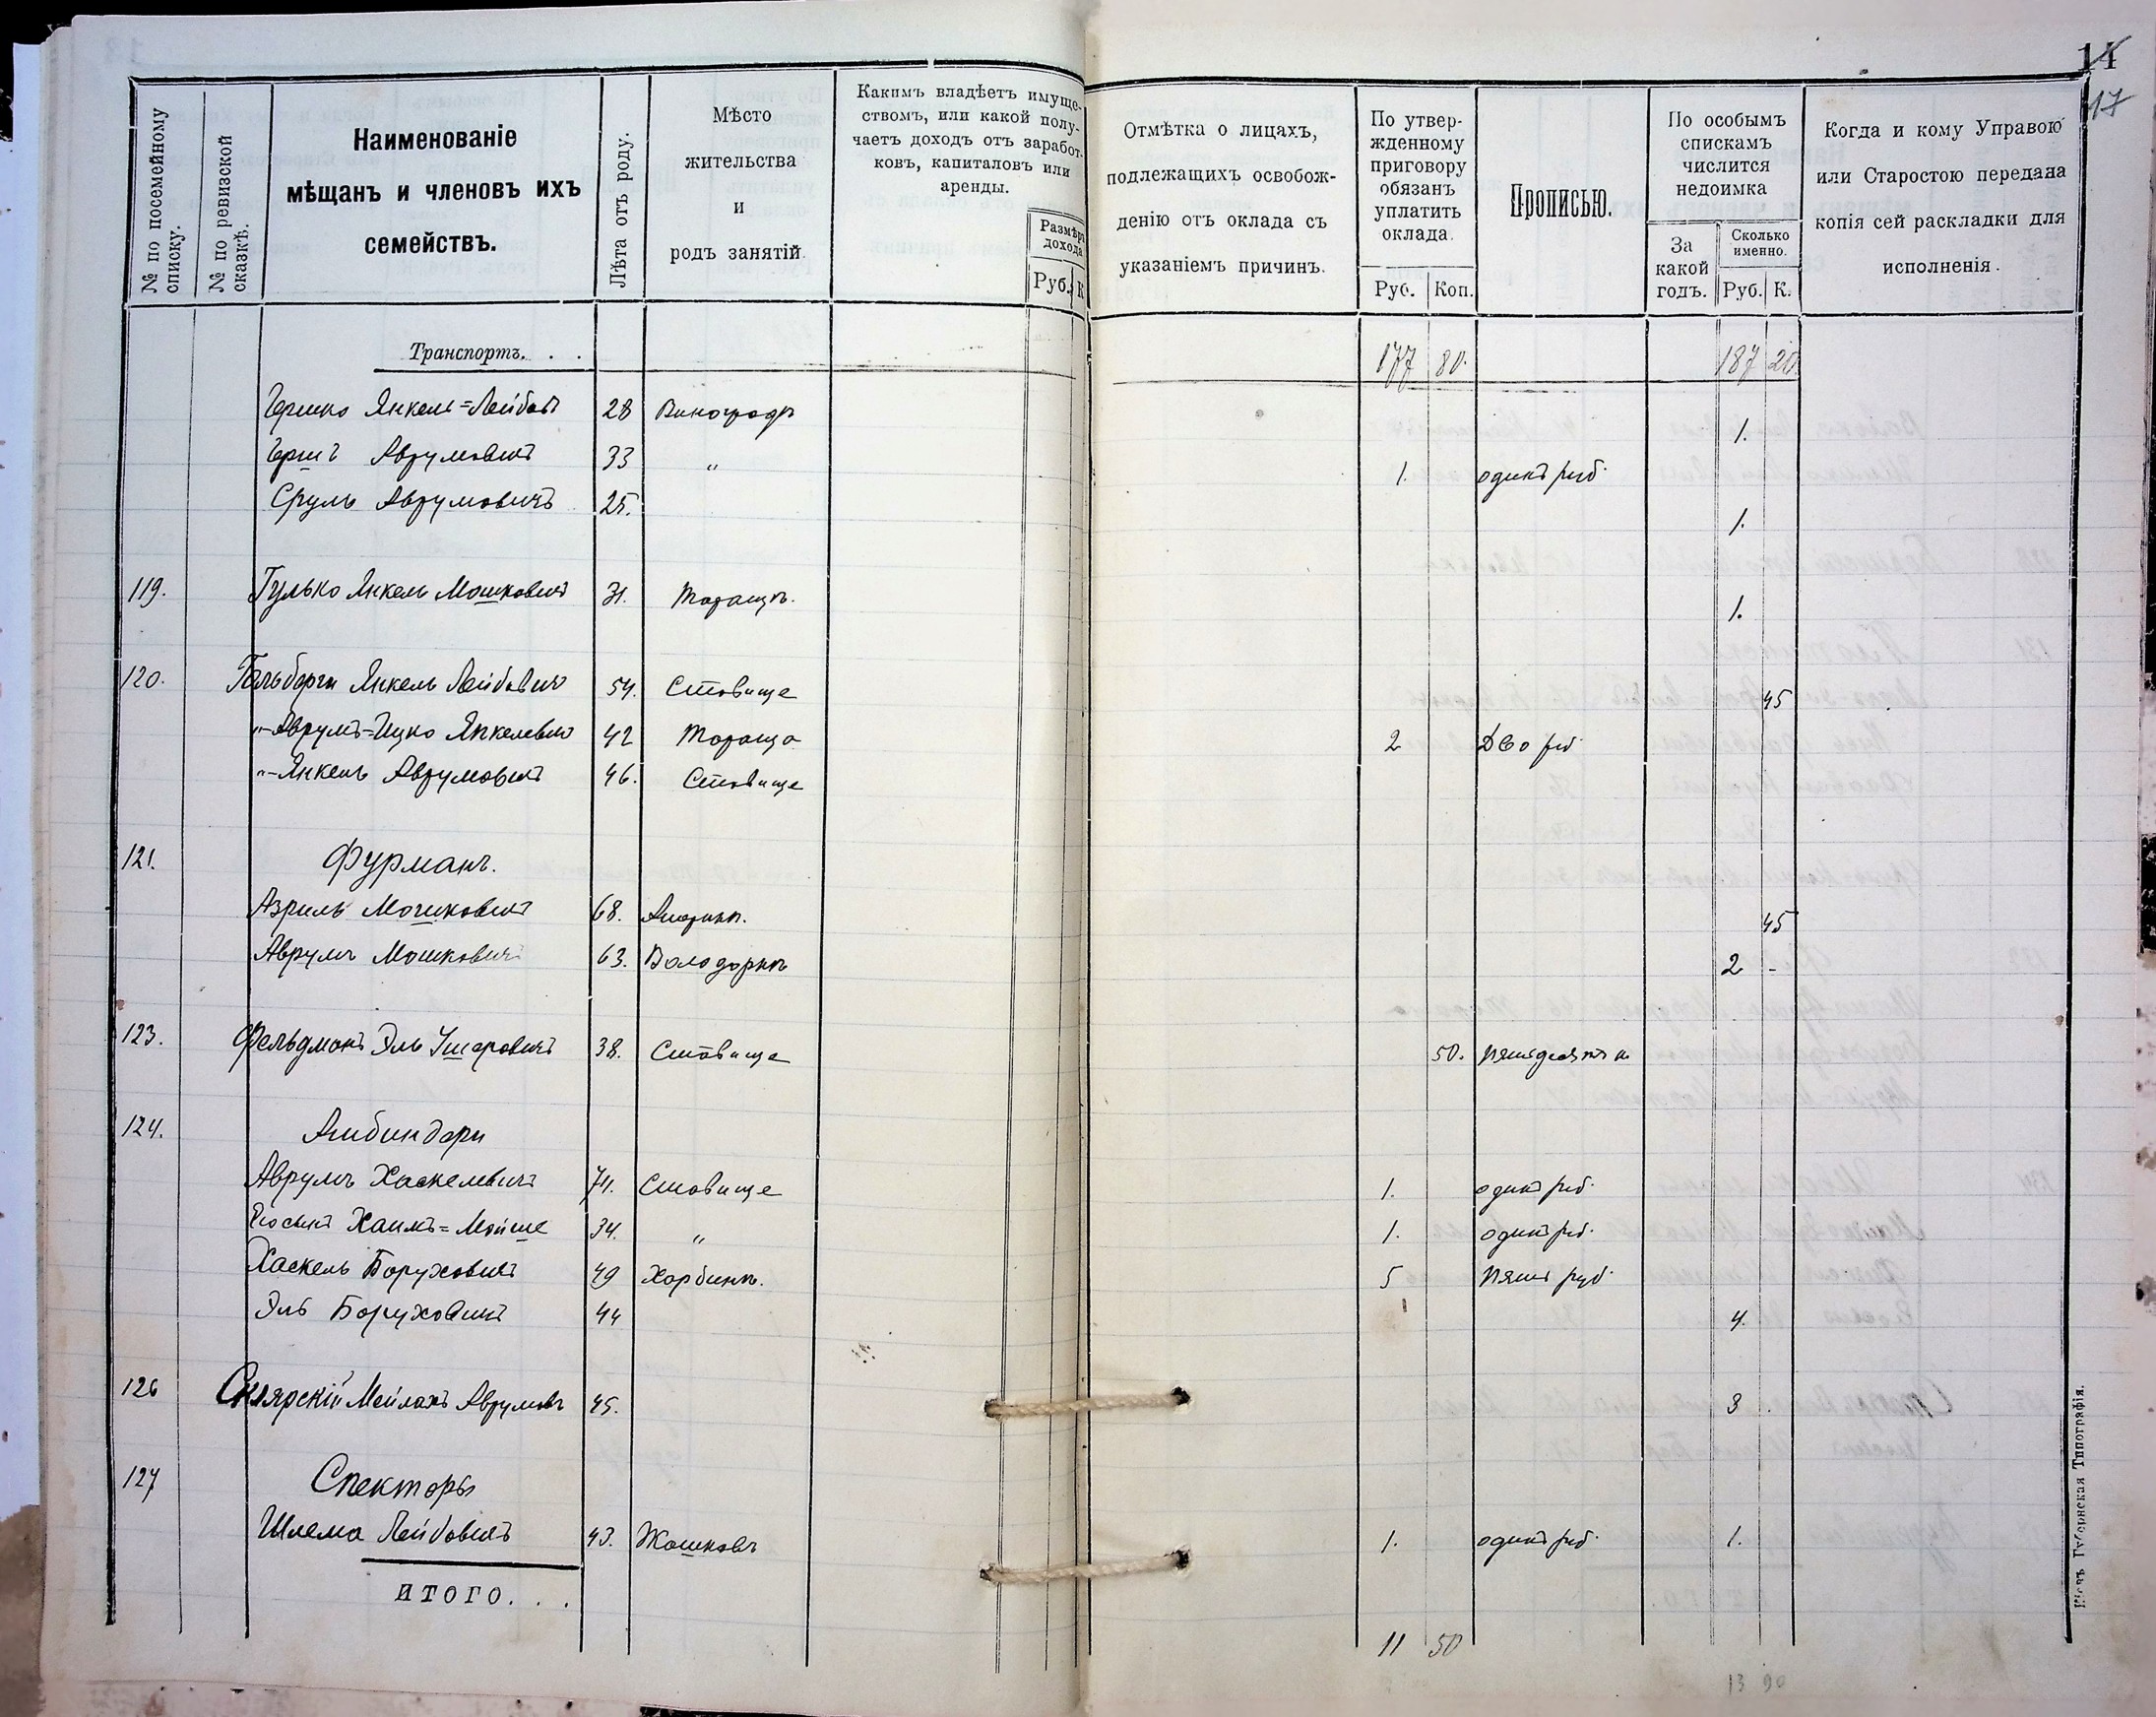 14
17
№ по посемейному списку.
№ по ревизской сказкѣ.
Наименованіе
мѣщанъ и членовъ ихъ
семействъ.
Лѣта отъ роду.
Мѣсто
жительства
и
родъ занятій.
Какимъ владѣетъ имуще-
ствомъ, или какой полу-
чаетъ доходъ отъ заработ-
ковъ, капиталовъ или
аренды.
Размѣръ
дохода
Руб. К
Отмѣтка о лицахъ,
подлежащихъ освобож-
денію отъ оклада съ
указаніемъ причинъ.
По утвер-
жденному
приговору
обязанъ
уплатить
оклада.
Руб. Коп.
Прописью.
По особымъ
спискамъ
числится
недоимка
За
какой
годъ.
Сколько
именно.
Руб. К.
Когда и кому Управою
или Старостою передана
копія сей раскладки для
исполненія.
Транспортъ. . . 177 80. 187 20.
Гершко Янкель=Лейбов 28 Виноградъ 1.
Герш Аврумовичъ 33 " 1. одинъ руб.
Сруль Аврумовичъ 25. 1.
119. Гулько Янкель Мошковичъ 31. Тараща. 1.
120. Янкель Лейбовичъ 54. Ставище 45
"-Аврумъ=Ицко Янкелевич 42 Тараща 2 Два руб
"-Янкель Аврумовичъ 46. Ставище
121. Фурманъ.
Азриль Мошковичъ 68. 45
Аврумъ Мошковичъ 63. Володаркъ 2 -
123. Фельдманъ Эль Ушеровичъ 38. Ставище 50. пятьдесятъ к.
124. Альбиндеры
Аврумъ Хаскелевичъ 74. Ставище 1. одинъ руб.
Хаимъ=Мойше 34. " 1. одинъ руб.
Хаскель Боруховичъ 49 5 пять руб
Эль Боруховичъ 44 4.
126 Склярскій Мейлахъ Аврумовъ 45. 3 .
127 Спекторы
Шлема Лейбовичъ 43. Жашковъ 1. одинъ руб. 1.
ИТОГО. . .
11 50
13 90
Кіевъ Губернская Типографія.